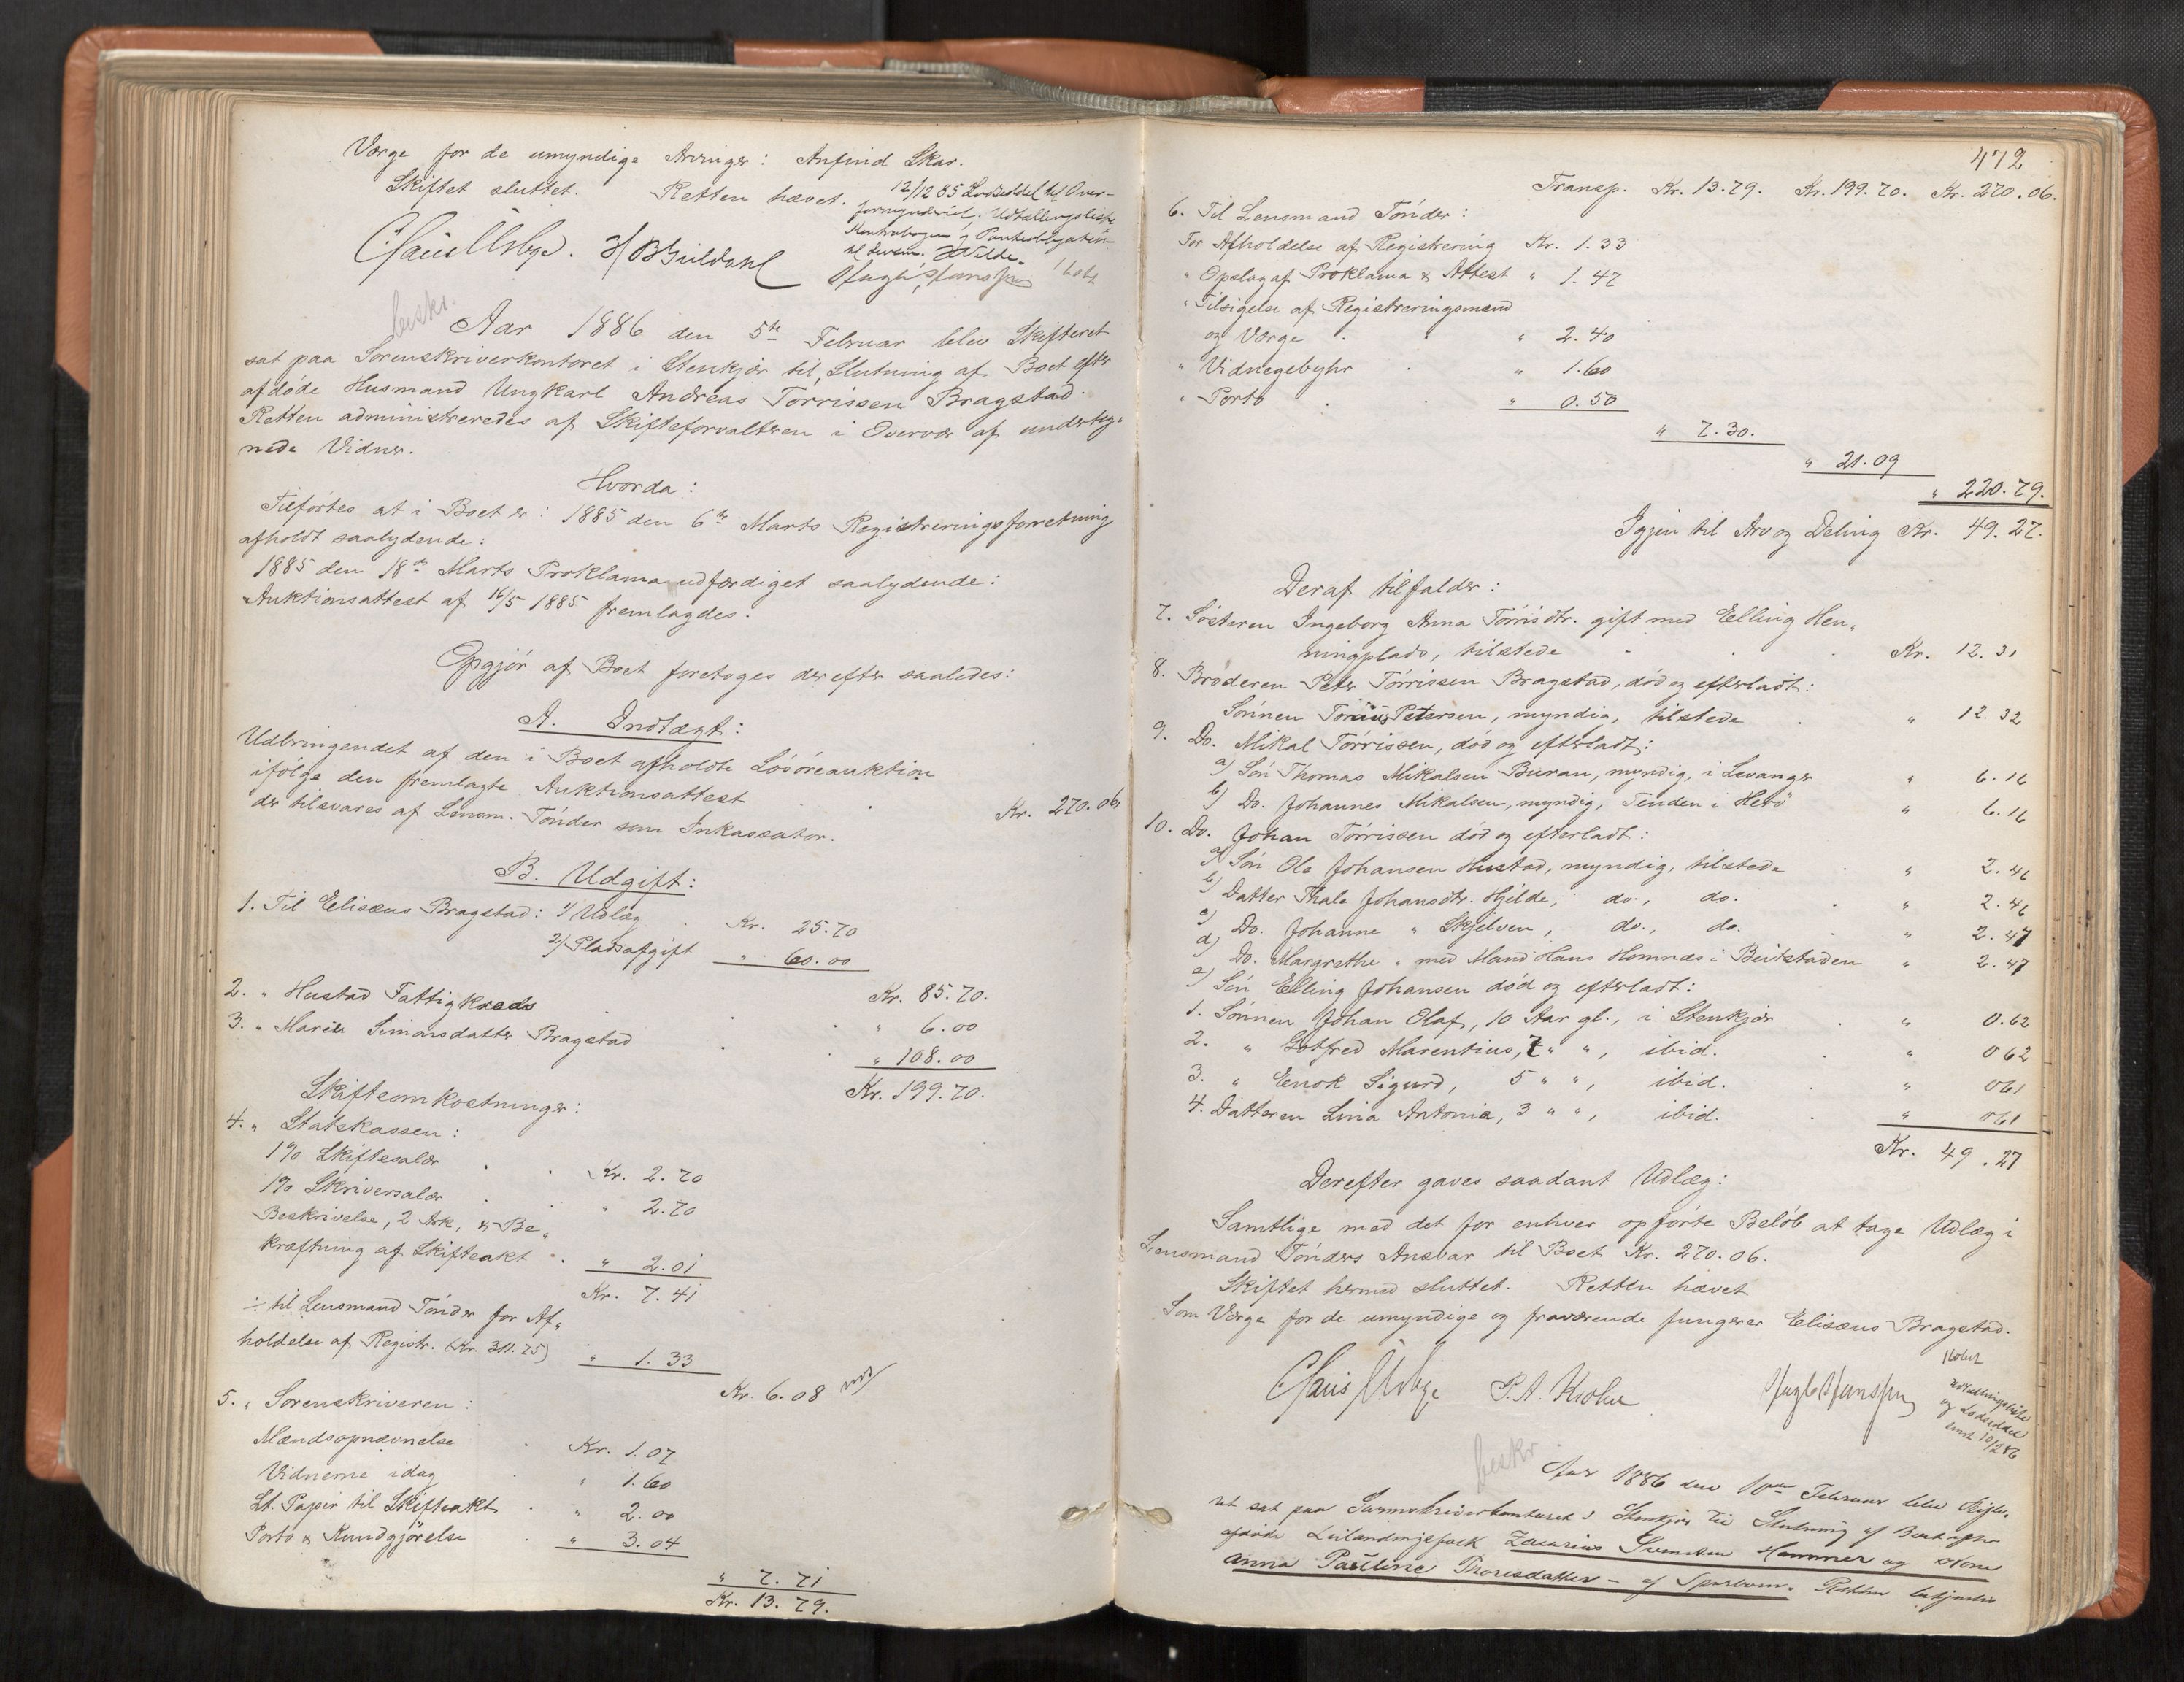 Værge for de umyndige Arvinger: Anfind Skar.
Skiftet sluttet. Retten hævet.
12/12 85 Lodseddel til Over-
formynderiet. Udtællingsliste
Kontrabogen og Pantobligation
til Lensm. Hilde.
beskr.
Aar 1886 den 5te Februar blev Skifteret
sat paa Sorenskriverkontoret i Stenkjær til Slutning af Boet efter
afdøde Husmand Ungkarl Andreas Tørrissen Bragstad.
Retten administreredes af Skifteforvalteren i Overvær af underteg-
nede Vidner.
Hvorda:
Tilførtes at i Boet er: 1885 den 6te Marts Registreringsforretning
afholdt saalydende:
1885 den 18de Marts Proklama udfærdiget saalydende:
Auktionsattest af 16/5 1885 fremlagdes.
Opgjør af Boet foretoges derefter saaledes:
A. Indtægt:
Udbringendet af den i Boet afholdte Løsøreauktion
ifølge den fremlagte Auktionsattest
der tilsvares af Lensm. Tønder som Inkassator. Kr. 270.06
B. Udgift:
1. Til Elisæus Bragstad: 1/ Udlæg Kr. 25.70
2/ Pladsafgift " 60.00
Kr. 85.70.
2. " Hustad Fattigkreds " 6.00
3. " Marie Simonsdatter Bragstad " 108.00
Kr. 199.70.
Skifteomkostninger:
4. " Statskassen:
1% Skiftesalær Kr. 2.70
1% Skriversalær " 2.70
Beskrivelse, 2 Ark, & Be-
kræftning af Skifteakt " 2.01
Kr. 7.41
÷ til Lensmand Tønder for Af-
holdelse af Registr. (Kr. 311.75) " 1.33
Kr. 6.08
5. " Sorenskriveren:
Mændsopnævnelse Kr. 1.07
Vidnerne idag " 1.60
St. Papir til Skifteakt " 2.00
Porto & Kundgjørelse " 3.04
" 7.71
Kr. 13.79.
472
Transp. Kr. 13.79. Kr. 199.70. Kr. 270.06.
6. Til Lensmand Tønder:
For Afholdelse af Registrering Kr. 1.33
" Opslag af Proklama & Attest " 1.47
" Tilsigelse af Registreringsmænd
og Værge " 2.40
" Vidnegebyhr " 1.60
" Porto " 0.50
" 7.30.
" 21.09
" 220.79.
Igjen til Arv og Deling Kr. 49.27.
Deraf tilfalder:
7. Søsteren Ingeborg Anna Tørrisdtr. gift med Elling Hen-
ningplads, tilstede Kr. 12.31
8. Broderen Peter Tørrissen Bragstad, død og efterladt:
Sønnen Torris Petersen, myndig, tilstede " 12.32
9. Do. Mikal Tørrissen, død og efterladt:
a) Søn Thomas Mikalsen Buran, myndig, i Levanger " 6.16
b) Do. Johannes Mikalsen, myndig, Tenden i Herø " 6.16
10. Do. Johan Tørrissen død og efterladt:
a) Søn Ole Johansen Hustad, myndig, tilstede " 2.46
b) Datter Thale Johansdtr. Hjelde, do., do. " 2.46
c) Do. Johanne " Skjelven, do., do. " 2.47
d) Do. Margrethe " med Mand Hans Homnæs i Beitstaden " 2.47
e) Søn Elling Johansen død og efterladt:
1. Sønnen Johan Olaf, 10 Aar gl., i Stenkjær " 0.62
2. " Gotfred Marentius, 7 " ", ibid. " 0 62
3. " Enok Sigurd, 5 " ", ibid. " 0 61
4. Datteren Lina Antonie, 3 " ", ibid. " 0 61
Kr. 49.27
Derefter gaves saadant Udlæg:
Samtlige med det for enhver opførte Beløb at tage Udlæg i
Lensmand Tønders Ansvar til Boet Kr. 270.06.
Skiftet hermed sluttet. Retten hævet
Som Værge for de umyndige og fraværende fungerer Elisæus Bragstad.
Udtællingsliste
og Lodseddel
sendt 10/2 86
beskr
Aar 1886 den Februar blev Skifte-
ret sat paa Sorenskriverkontoret i Stenkjær til Slutning af Boet efter
afdøde Leilændingefolk Zacarias Svendsen Hammer og Kone
Anna Pauline Thorisdatter - af Sparboen. Retten betjentes